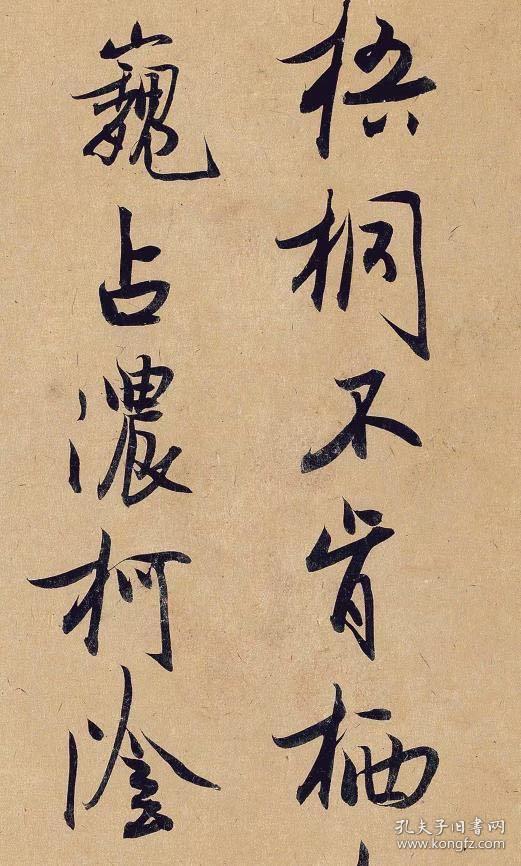 梧桐不肯栖
巍占濃柯陰
孔夫子旧书网
www.kongfz.com